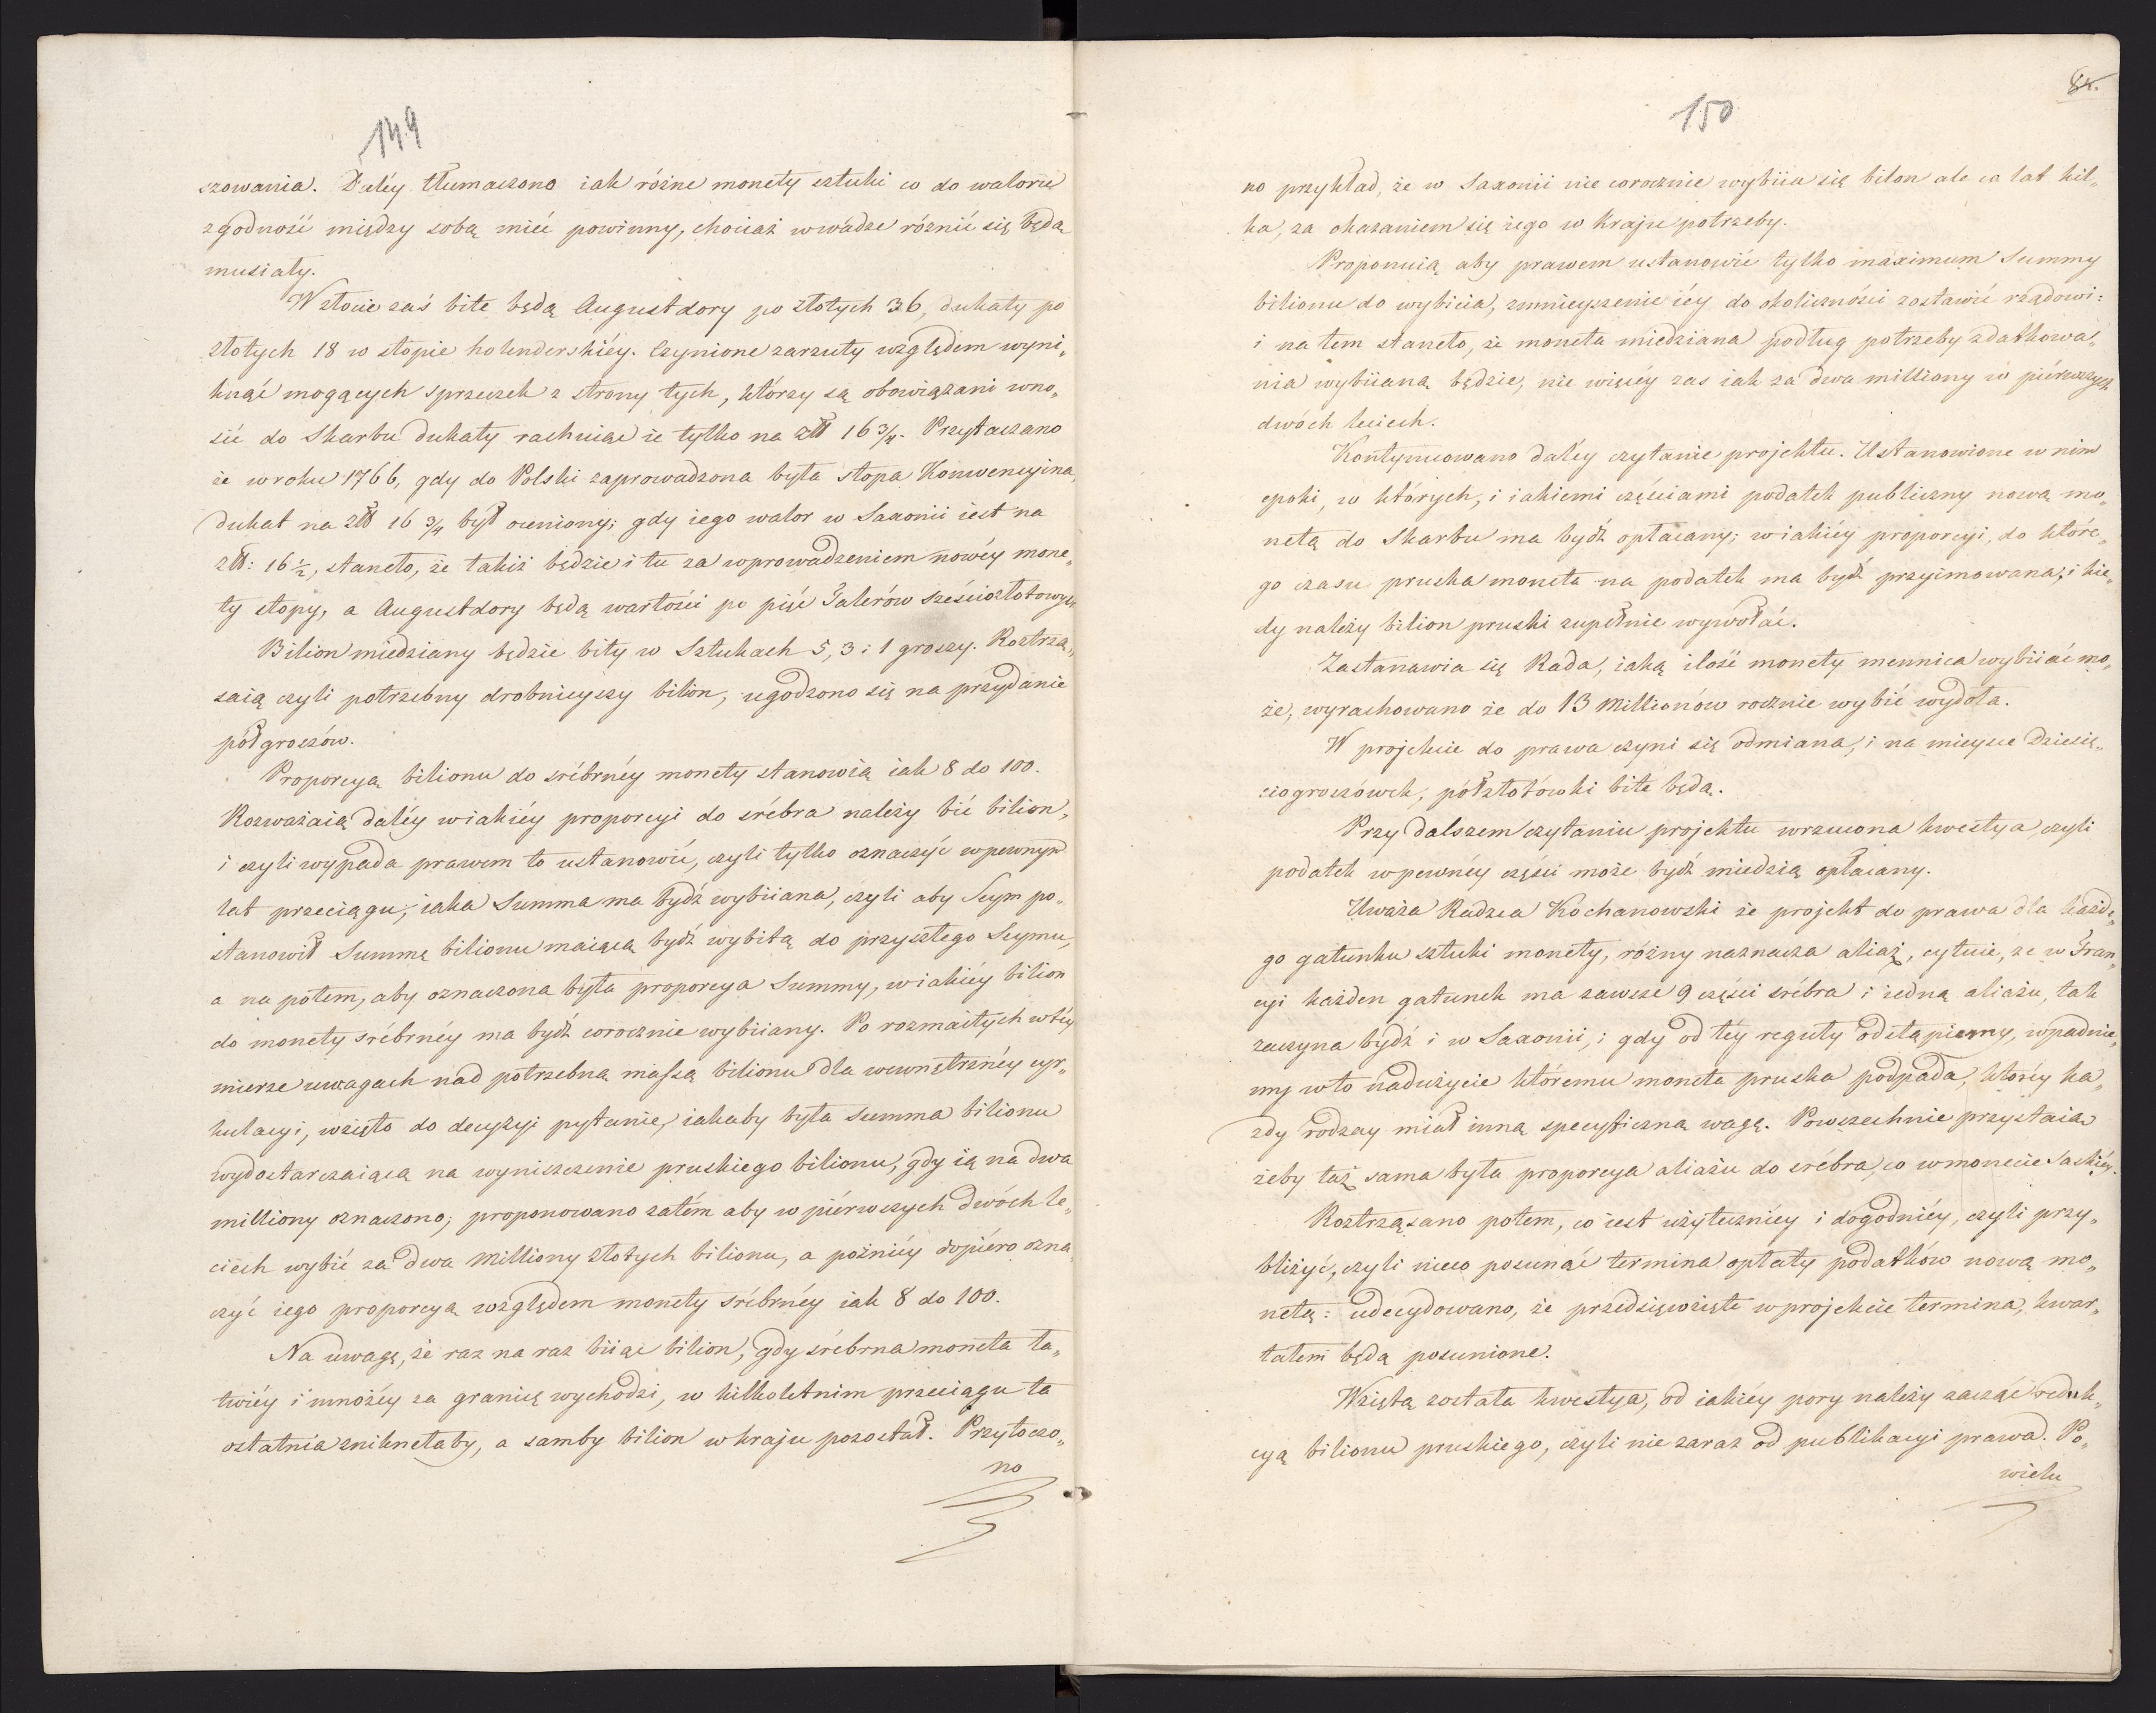 149
szowania. Daléy tłumaczono iak różne monety sztuki co do waloru
zgodność między sobą mieć powinny, chociaż w wadze różnić się będą
musiały.
W złocie zaś bite będą Augustdory po złotych 36, dukaty po
złotych 18 w stopie holenderskiéy. Czynione zarzuty względem wyni„
knąć mogących sprzeczek z strony tych, którzy są obowiązani wno„
sić do Skarbu dukaty rachuiąc ie tylko na złł 16 3/4. Przytaczano
że w roku 1766, gdy do Polski zaprowadzona była stopa Konwencyina,
dukat na złł 16 3/4 był oceniony; gdy iego walor w Saxonii iest na
złł: 16 1/2, staneło, że takiż będzie i tu za wprowadzeniem nowéy mone„
ty stopy, a Augustdory będą wartości po pięć Talerów sześciozłotowych
Bilion miedziany będzie bity w Sztukach 5, 3 i 1 groszy. Roztrzą„
saią czyli potrzebny drobnieyszy bilion, ugodzono się na przydanie
półgroszów.
Proporcyą bilionu do srébrnéy monety stanowią iak 8 do 100.
Rozważaią daléy w iakiéy proporcyi do srébra należy bić bilion,
i czyli wypada prawem to ustanowić, czyli tylko oznaczyć w pewnym
lat przeciągu, iaka Summa ma bydź wybiiana, czyli aby Seym po„
stanowił Summę bilionu maiącą bydź wybitą do przyszłego Seymu,
a na potem, aby oznaczona była proporcya Summy, w iakiéy bilion
do monety srébrnéy ma bydź corocznie wybiiany. Po rozmaitych w téy
mierze uwagach nad potrzebną massą bilionu dla wewnętrznéy cyr„
kulacyi, wzięto do decyzyi pytanie, iakaby była Summa bilionu
wydostarczaiącą na wyniszczenie pruskiego bilionu, gdy ią na dwa
milliony oznaczono; proponowano zatém aby w piérwszych dwóch le„
ciech wybić za dwa Milliony złotych bilionu, a poźniéy dopiéro ozna„
czyć iego proporcyą względem monety srébrnéy iak 8 do 100.
Na uwagę, że raz na raz biiąc bilion, gdy srébrna moneta ła„
twiéy i mnożéy za granicę wychodzi, w kilkoletnim przeciągu ta
ostatnia zniknełaby, a samby bilion w kraju pozostał. Przytoczo„
no
84.
150
no przykład, że w Saxonii nie corocznie wybiia się bilon ale co lat kil„
ka, za okazaniem się iego w kraju potrzeby.
Proponuią aby prawem ustanowić tylko maximum Summy
bilionu do wybicia, zmnieyszenie iéy do okoliczności zostawić rządowi:
i na tem staneło, że moneta miedziana podług potrzeby zdatkowa„
nia wybiianą będzie, nie więcéy zas iak za dwa milliony w piérwszych
dwóch leciech.
Kontynuowano daléy czytanie projektu. Ustanowione w nim
epoki, w których, i iakiemi częściami podatek publiczny nową mo„
netą do Skarbu ma bydź opłacany; w iakiéy proporcyi, do które„
go czasu pruska moneta na podatek ma bydź przyimowana, i kie„
dy należy bilion pruski zupełnie wywołać.
Zastanawia się Rada, iaką ilość monety mennica wybiiać mo„
że, wyrachowano że do 13 Millionów rocznie wybić wydoła.
W projekcie do prawa czyni się odmiana, i na mieysce dziesię„
ciogroszówek, półzłotówki bite będą.
Przy dalszem czytaniu projektu wrzucona kwestya, czyli
podatek w pewnéy części może bydź miedzią opłacany.
Uważa Radzca Kochanowski że projekt do prawa dla każde„
go gatunku sztuki monety, różny naznacza aliaż, cytuie, że w Fran„
cyi każden gatunek ma zawsze 9 części srébra i iedną aliażu, tak
zaczyna bydź i w Saxonii, i gdy od téy reguły odstąpiemy, wpadnie„
my w to nadużycie któremu moneta pruska podpada, któréy ka„
żdy rodzay miał inną specyficzną wagę. Powszechnie przystaią
żeby taż sama była proporcya aliażu do srébra, co w monecie Saskiéy.
Roztrząsano potem, co iest użyteczniéy i dogodniéy, czyli przy„
bliżyć, czyli nieco posunąć termina opłaty podatków nową mo„
netą: udecydowano, że przedsięwzięte w projekcie termina, kwar„
tałem będą posunione.
Wziętą została kwestya, od iakiéy pory należy zacząć reduk„
cyą bilionu pruskiego, czyli nie zaraz od publikacyi prawa. Po„
wielu